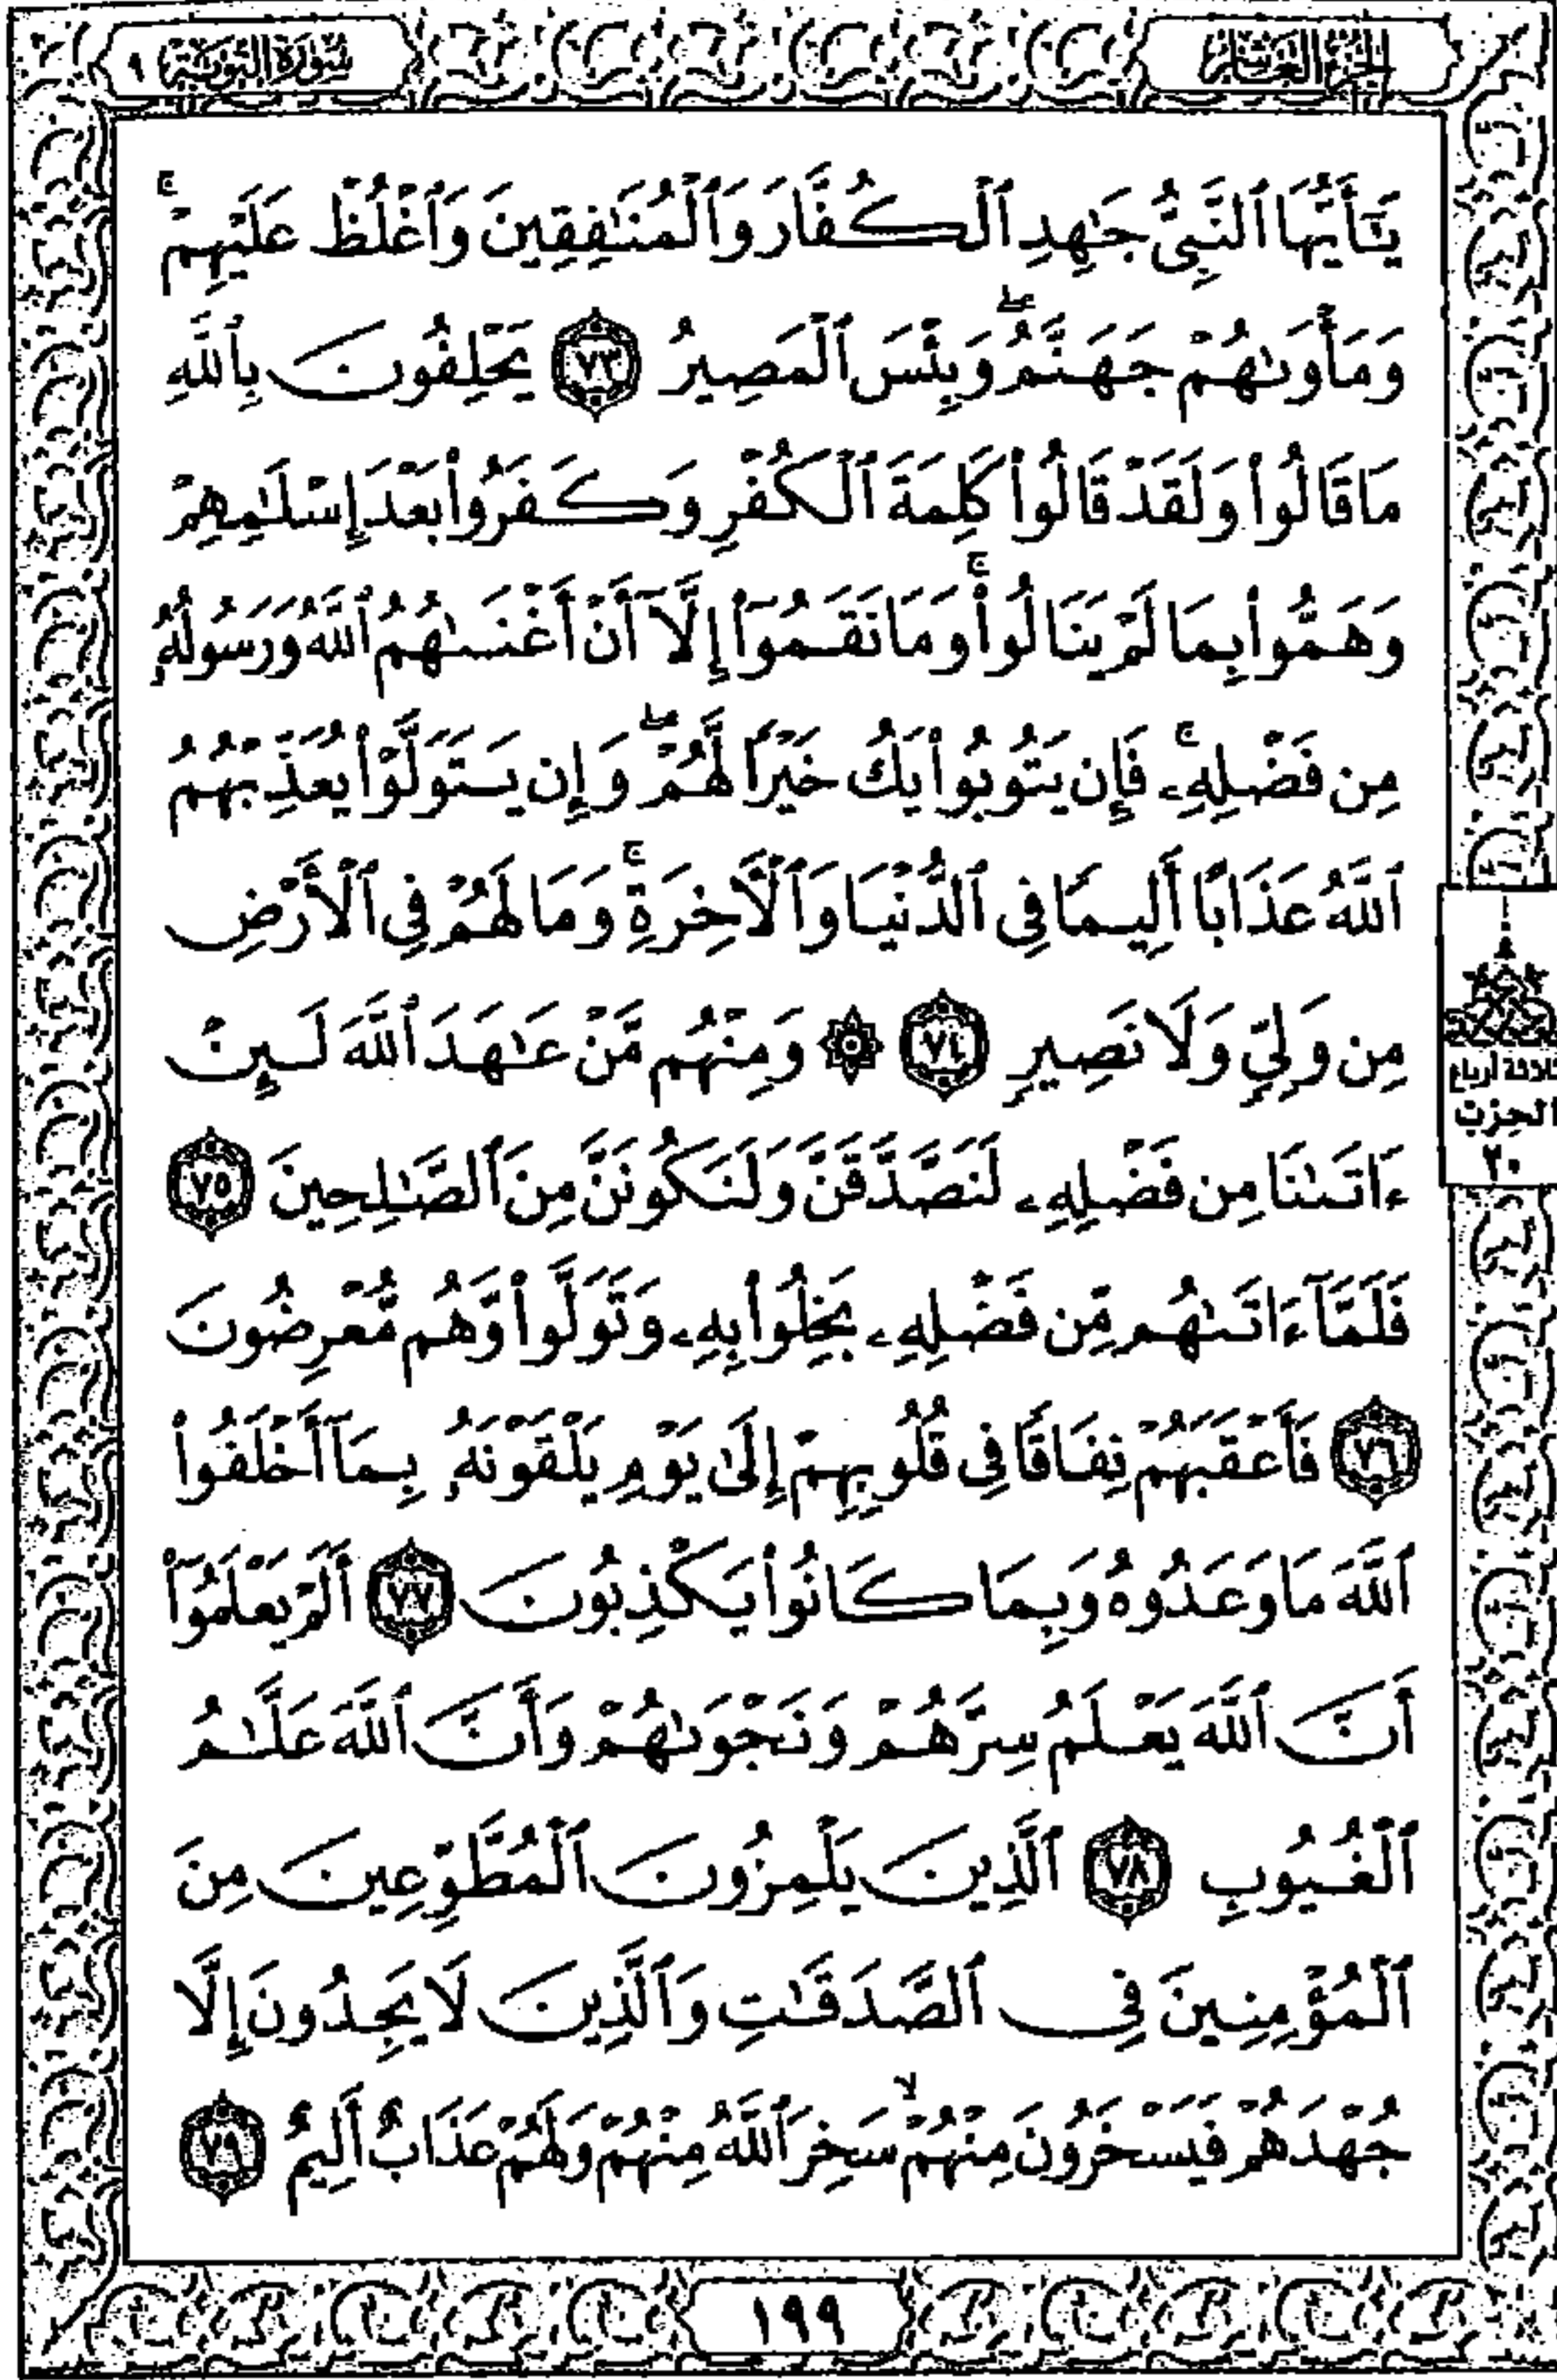 الجزء العاشر
سورة التوبة ٩
يَٰٓأَيُّهَا ٱلنَّبِىُّ جَٰهِدِ ٱلْكُفَّارَ وَٱلْمُنَٰفِقِينَ وَٱغْلُظْ عَلَيْهِمْۚ
وَمَأْوَىٰهُمْ جَهَنَّمُۖ وَبِئْسَ ٱلْمَصِيرُ ٧٣ يَحْلِفُونَ بِٱللَّهِ
مَا قَالُوا۟ وَلَقَدْ قَالُوا۟ كَلِمَةَ ٱلْكُفْرِ وَكَفَرُوا۟ بَعْدَ إِسْلَٰمِهِمْ
وَهَمُّوا۟ بِمَا لَمْ يَنَالُوا۟ۚ وَمَا نَقَمُوٓا۟ إِلَّآ أَنْ أَغْنَىٰهُمُ ٱللَّهُ وَرَسُولُهُۥ
مِن فَضْلِهِۦۚ فَإِن يَتُوبُوا۟ يَكُ خَيْرًا لَّهُمْۖ وَإِن يَتَوَلَّوْا۟ يُعَذِّبْهُمُ
ٱللَّهُ عَذَابًا أَلِيمًا فِى ٱلدُّنْيَا وَٱلْءَاخِرَةِۚ وَمَا لَهُمْ فِى ٱلْأَرْضِ
مِن وَلِىٍّ وَلَا نَصِيرٍ ٧٤ ۞ وَمِنْهُم مَّنْ عَٰهَدَ ٱللَّهَ لَئِنْ
ءَاتَىٰنَا مِن فَضْلِهِۦ لَنَصَّدَّقَنَّ وَلَنَكُونَنَّ مِنَ ٱلصَّٰلِحِينَ ٧٥
فَلَمَّآ ءَاتَىٰهُم مِّن فَضْلِهِۦ بَخِلُوا۟ بِهِۦ وَتَوَلَّوا۟ وَّهُم مُّعْرِضُونَ
٧٦ فَأَعْقَبَهُمْ نِفَاقًا فِى قُلُوبِهِمْ إِلَىٰ يَوْمِ يَلْقَوْنَهُۥ بِمَآ أَخْلَفُوا۟
ٱللَّهَ مَا وَعَدُوهُ وَبِمَا كَانُوا۟ يَكْذِبُونَ ٧٧ أَلَمْ يَعْلَمُوٓا۟
أَنَّ ٱللَّهَ يَعْلَمُ سِرَّهُمْ وَنَجْوَىٰهُمْ وَأَنَّ ٱللَّهَ عَلَّٰمُ
ٱلْغُيُوبِ ٧٨ ٱلَّذِينَ يَلْمِزُونَ ٱلْمُطَّوِّعِينَ مِنَ
ٱلْمُؤْمِنِينَ فِى ٱلصَّدَقَٰتِ وَٱلَّذِينَ لَا يَجِدُونَ إِلَّا
جُهْدَهُمْ فَيَسْخَرُونَ مِنْهُمْۙ سَخِرَ ٱللَّهُ مِنْهُمْ وَلَهُمْ عَذَابٌ أَلِيمٌ ٧٩
ثلاثة أرباع
الحزب
٢٠
١٩٩